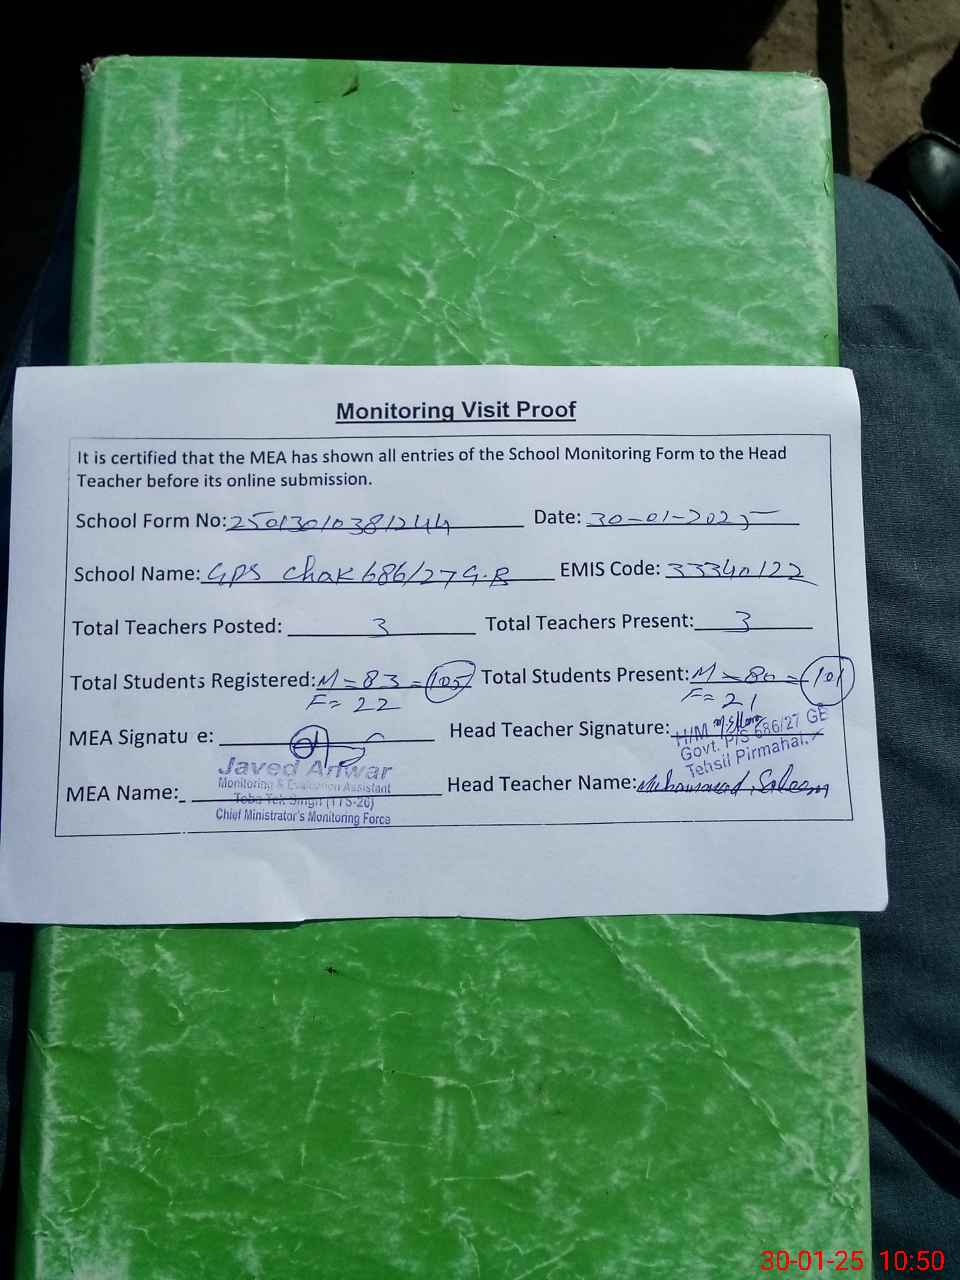 Monitoring Visit Proof
It is certified that the MEA has shown all entries of the School Monitoring Form to the Head
Teacher before its online submission.
School Form No: 25013010381244 Date: 30-01-2025
School Name: GPS Chak 686/27 G.B EMIS Code: 33340122
Total Teachers Posted: 3 Total Teachers Present: 3
Total Students Registered: M = 83 = 105 Total Students Present: M = 80 = 101
F = 22 F = 21
MEA Signatu e: Head Teacher Signature:
H/M
Govt. P/S 686/27 GB
Tehsil Pirmahal.
Javed Anwar
Monitoring & Evaluation Assistant
Toba Tek Singh (TTS-20)
Chief Ministrator's Monitoring Force
MEA Name: Head Teacher Name: Muhammad Saleem
30-01-25 10:50